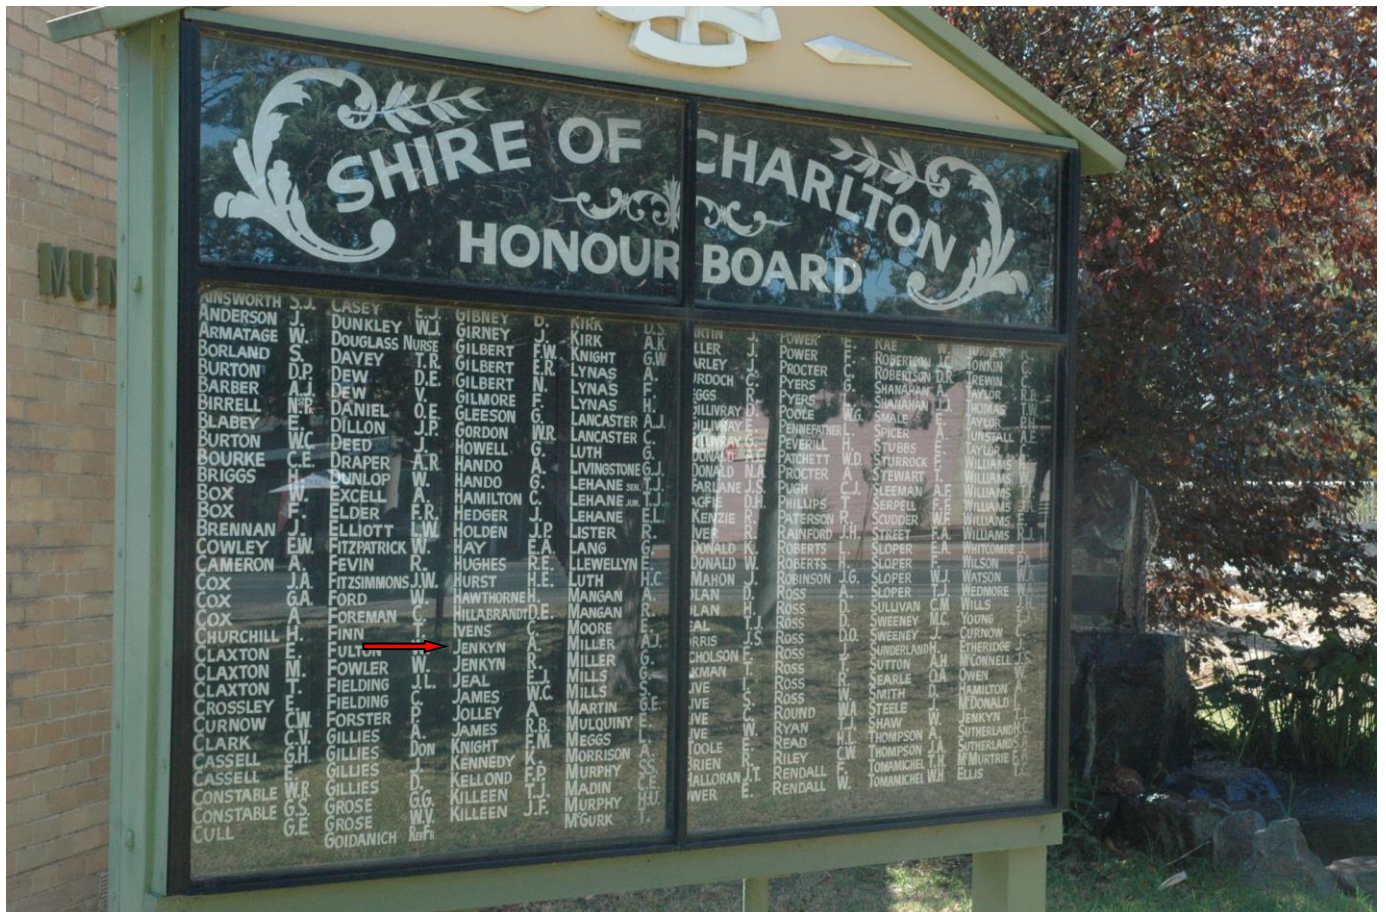 MUN
SHIRE OF CHARLTON
HONOUR BOARD
AINSWORTH S.J.
ANDERSON J.
ARMATAGE W.
BORLAND S.
BURTON D.P.
BARBER A.J.
BIRRELL N.P.
BLABEY E.
BURTON W.C.
BOURKE C.E.
BRIGGS H.
BOX W.
BOX F.
BRENNAN J.
COWLEY E.W.
CAMERON A.
COX J.A.
COX G.A.
COX A.
CHURCHILL H.
CLAXTON E.
CLAXTON M.
CLAXTON T.
CROSSLEY E.
CURNOW C.W.
CLARK C.V.
CASSELL G.H.
CASSELL E.
CONSTABLE W.R.
CONSTABLE G.S.
CULL G.E.
CASEY E.J.
DUNKLEY W.J.
DOUGLASS NURSE
DAVEY T.R.
DEW D.E.
DEW V.
DANIEL O.E.
DILLON J.P.
DEED J.
DRAPER A.R.
DUNLOP W.
EXCELL A.
ELDER F.R.
ELLIOTT L.W.
FITZPATRICK W.
FEVIN R.
FITZSIMMONS J.W.
FORD W.
FOREMAN C.
FINN T.
FULTON
FOWLER W.
FIELDING J.L.
FIELDING C.
FORSTER P.
GILLIES A.
GILLIES DON
GILLIES J.
GILLIES D.
GROSE G.G.
GROSE W.V.
GOIDANICH REV FR
GIBNEY D.
GIRNEY J.
GILBERT F.W.
GILBERT E.R.
GILBERT N.
GILMORE F.
GLEESON G.
GORDON W.R.
HOWELL G.
HANDO A.
HANDO G.
HAMILTON C.
HEDGER J.
HOLDEN J.P.
HAY E.A.
HUGHES R.E.
HURST H.E.
HAWTHORNE H.
HILLABRANDT D.E.
IVENS C.
JENKYN A.
JENKYN R.
JEAL E.J.
JAMES W.C.
JOLLEY A.
JAMES R.B.
KNIGHT F.M.
KENNEDY K.
KELLOND F.P.
KILLEEN T.J.
KILLEEN J.F.
KIRK D.S.
KIRK A.K.
KNIGHT G.W
LYNAS A.
LYNAS F.
LYNAS H.
LANCASTER A.J.
LANCASTER C.
LUTH G.
LIVINGSTONE G.J.
LEHANE SEN. T.J.
LEHANE JUN. T.J.
LEHANE E.L.
LISTER R.
LANG G.
LLEWELLYN E.
LUTH H.C
MANGAN A.
MANGAN R.
MOORE E.
MILLER A.J.
MILLER G.
MILLS
MILLS S.
MARTIN G.E.
MULQUINY E.
MEGGS
MORRISON A.
MURPHY
MADIN C.E.
MURPHY
McGURK T.
RTIN J.
LLER J.
ARLEY J.
URDOCH C.
GGS R.
GILLIVRAY D.
GILLIVRAY E.
GILLIVRAY G.
DONALD A.C.
DONALD N.A.
FARLANE J.S.
D.H.
KENZIE R.
IVER R.
DONALD K.
DONALD W.
MAHON J.
OLAN D.
OLAN H.
EAL T.J.
ORRIS J.S.
CHOLSON F.
KMAN T.
IVE
IVE S.
IVE C.
IVE W.
TOOLE E.
BRIEN R.
HALLORAN J.T.
OWER E.
POWER E.
POWER F.
PROCTER C.
PYERS G.
PYERS
POOLE W.G.
PENNEFATHER L.
PEVERILL H.
PATCHETT W.D.
PROCTER A.
PUGH C.J.
PHILLIPS
PATERSON R.
RAINFORD J.H.
ROBERTS L.
ROBERTS H.
ROBINSON J.G.
ROSS A.
ROSS D.
ROSS D.O.
ROSS J.
ROSS T.
ROSS R.
ROSS W.
ROUND W.A
RYAN T.J.
READ H.L.
RILEY C.W
RENDALL F.
RENDALL W.
RAE W.
ROBERTSON J.C.
ROBERTSON D.R.
SHANAHAN A.
SHANAHAN J.J.
SMALE
SPICER
STUBBS
STURROCK
STEWART
SLEEMAN A.F.
SERPELL
SCUDDER W.F.
STREET F.A.
SLOPER E.A.
SLOPER F.
SLOPER W.J.
SLOPER T.J.
SULLIVAN C.M
SWEENEY M.C.
SWEENEY J.
SUNDERLAND H.
SUTTON A.H
SEARLE O.A
SMITH D.
STEELE J.
SHAW W.
THOMPSON A.
THOMPSON J.A.
TOMAMICHEL T.H.
TOMAMICHEL W.H
TURNER
TONKIN
TREWIN
TAYLOR
THOMAS
TAYLOR
TUNSTALL A.E
TAYLOR
WILLIAMS
WILLIAMS
WILLIAMS
WILLIAMS R.J.
WHITCOMBE J.
WILSON
WATSON W.A.
WEDMORE
WILLS J.H.
YOUNG
CURNOW C.
ETHERIDGE J.
McCONNELL J.S.
OWEN
HAMILTON
McDONALD
JENKYN
SUTHERLAND
SUTHERLAND
McMURTRIE
ELLIS